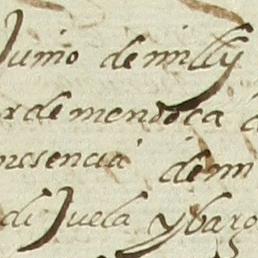 Junio de mill y
r de mendoça d
presencia de mi
di Juela ybarg